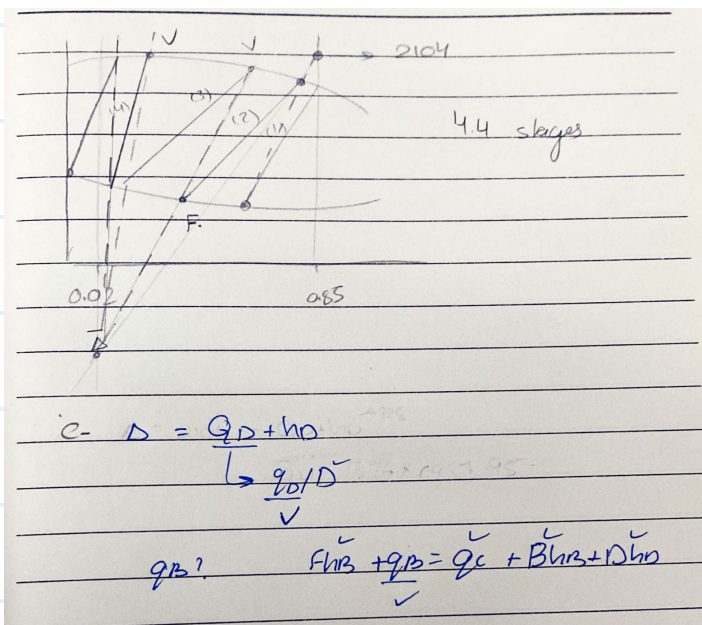 V V → 2104
(4) (3) (2) (1)
4.4 stages
F.
0.02 0.85
c- Δ = QD + hD
↳ qD/D
qB? FhB + qB = qc + BhB + DhD